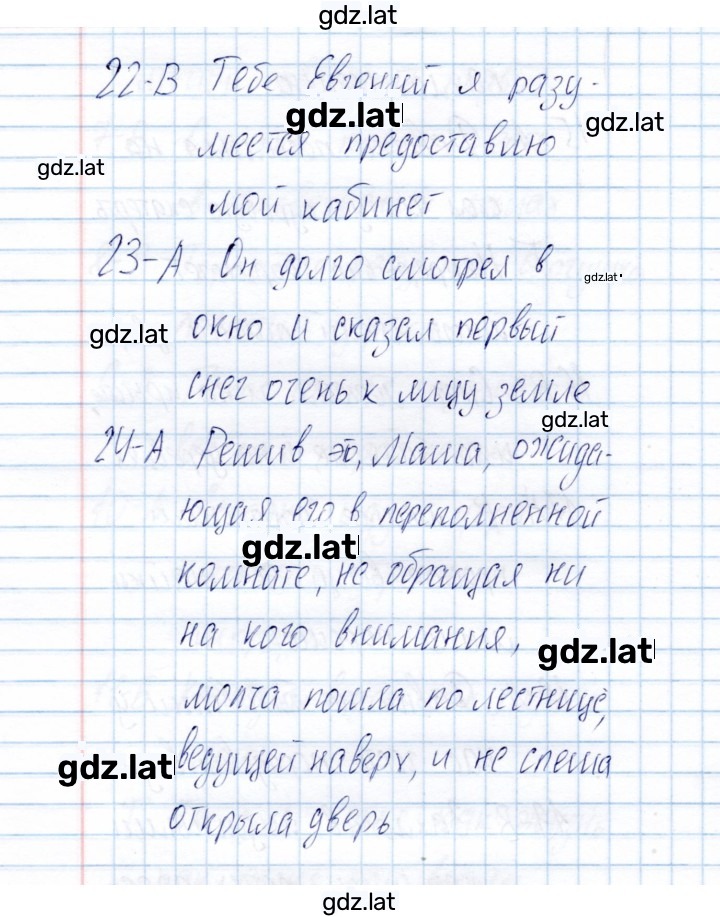 gdz.lat
22-В Тебе Евгений я разу-
gdz.lat
gdz.lat
меется предоставлю
gdz.lat
мой кабинет
23-А Он долго смотрел в
gdz.lat
окно и сказал первый
gdz.lat
снег очень к лицу земле
gdz.lat
24-А Решив это, Маша, ожида-
ющая его в переполненной
gdz.lat
комнате, не обращая ни
на кого внимания,
gdz.lat
молча пошла по лестнице,
ведущей наверх, и не спеша
gdz.lat
открыла дверь
gdz.lat